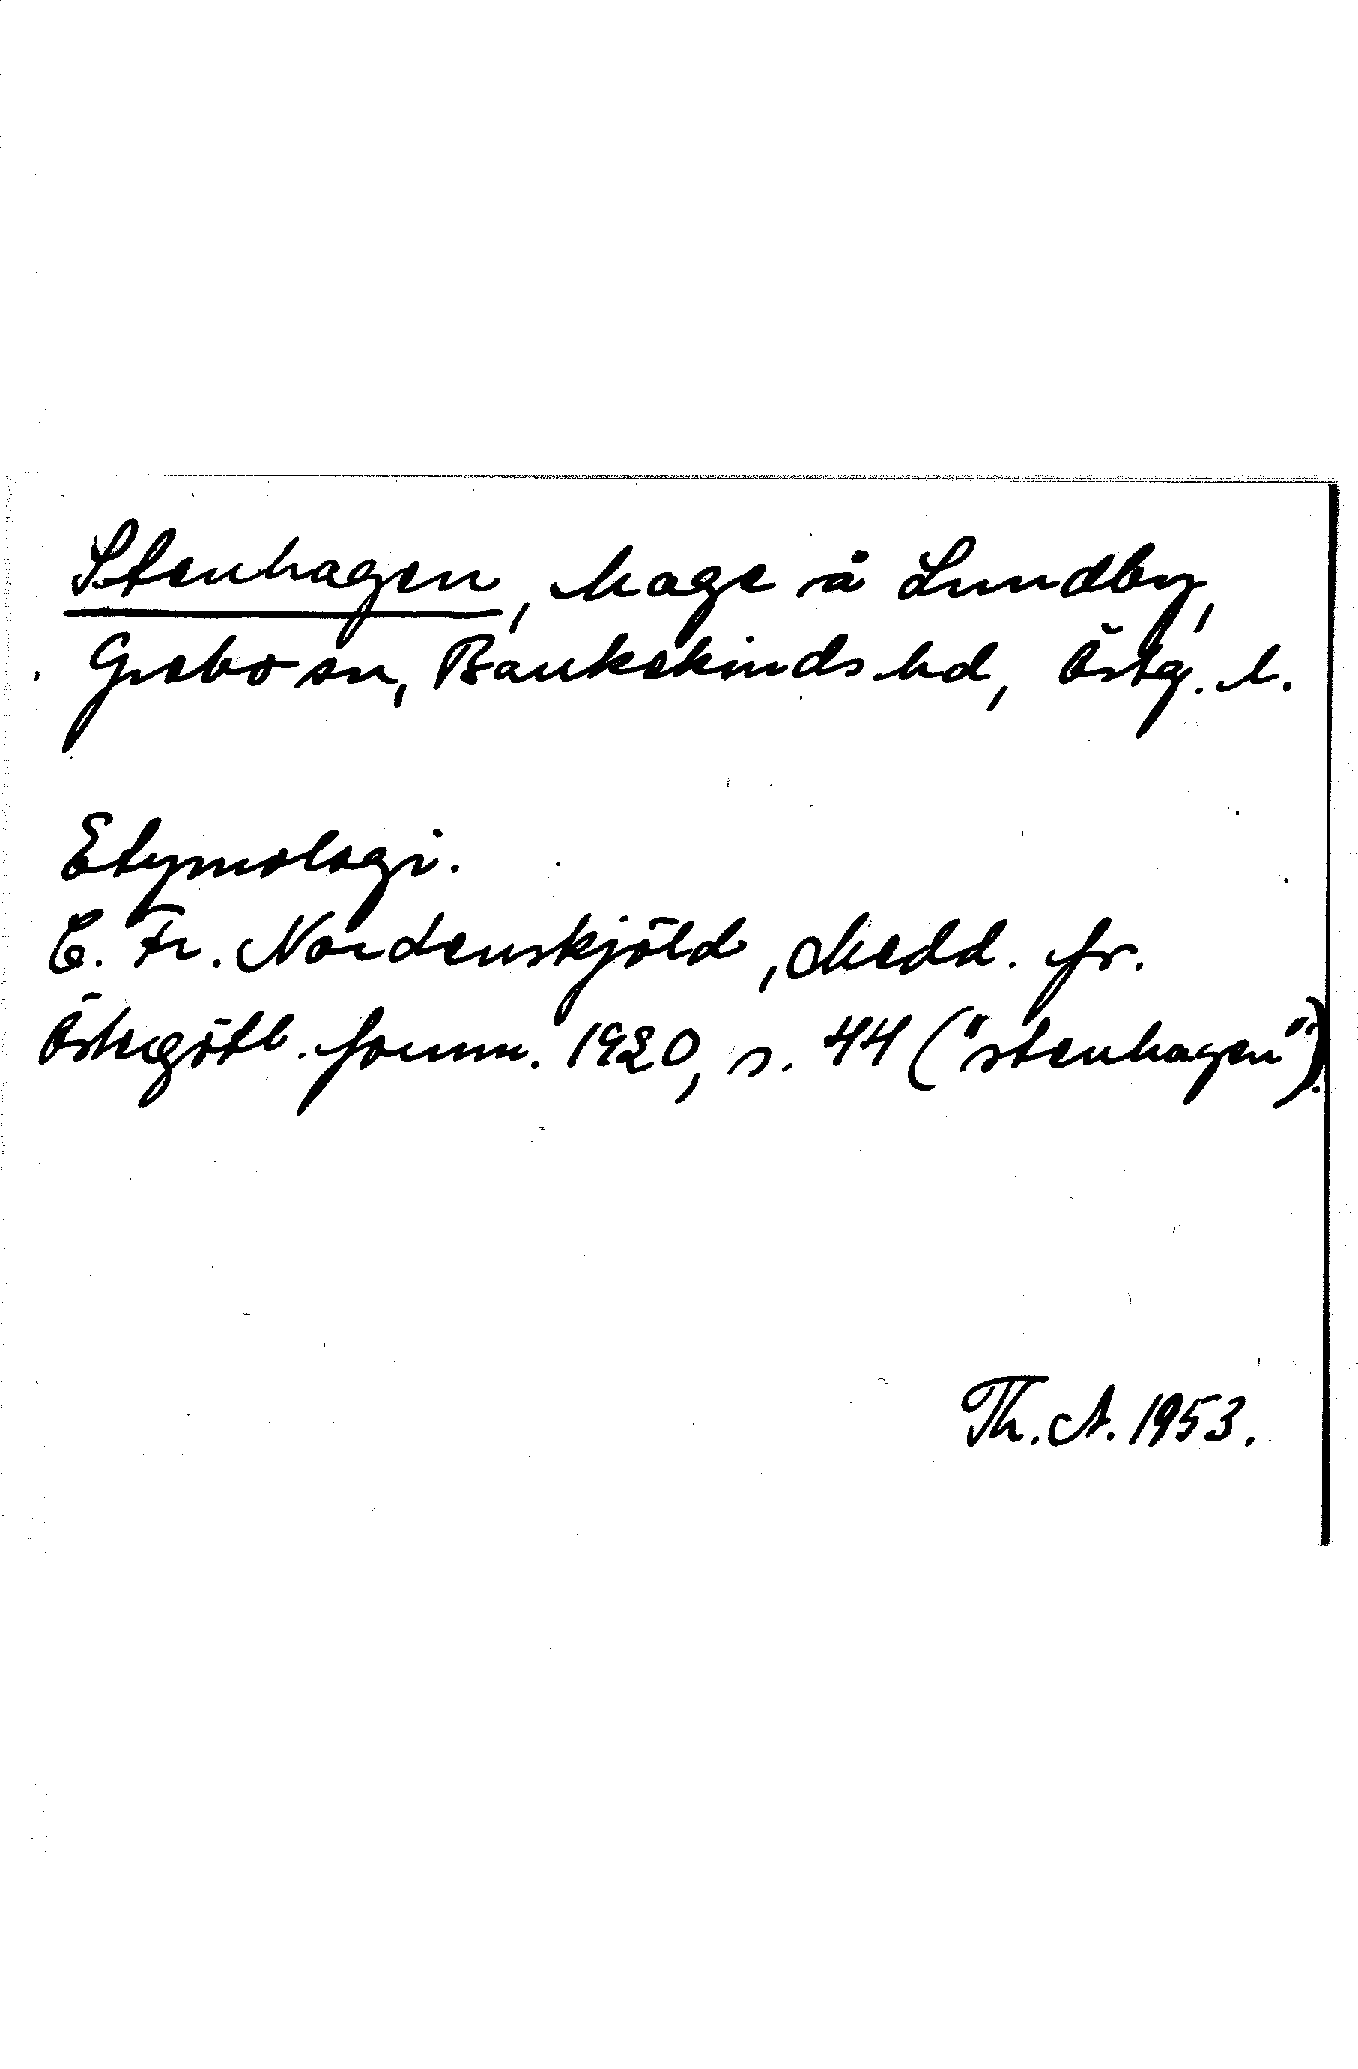 Stenhagen, hage å Lundby,
Grebo sn, Bankekinds hd, Östg. l.
Etymologi.
C. Fr. Nordenskjöld, Medd. fr.
Östergötl. fornm. 1920, s. 44 ("stenhagen").
Th. A. 1953.